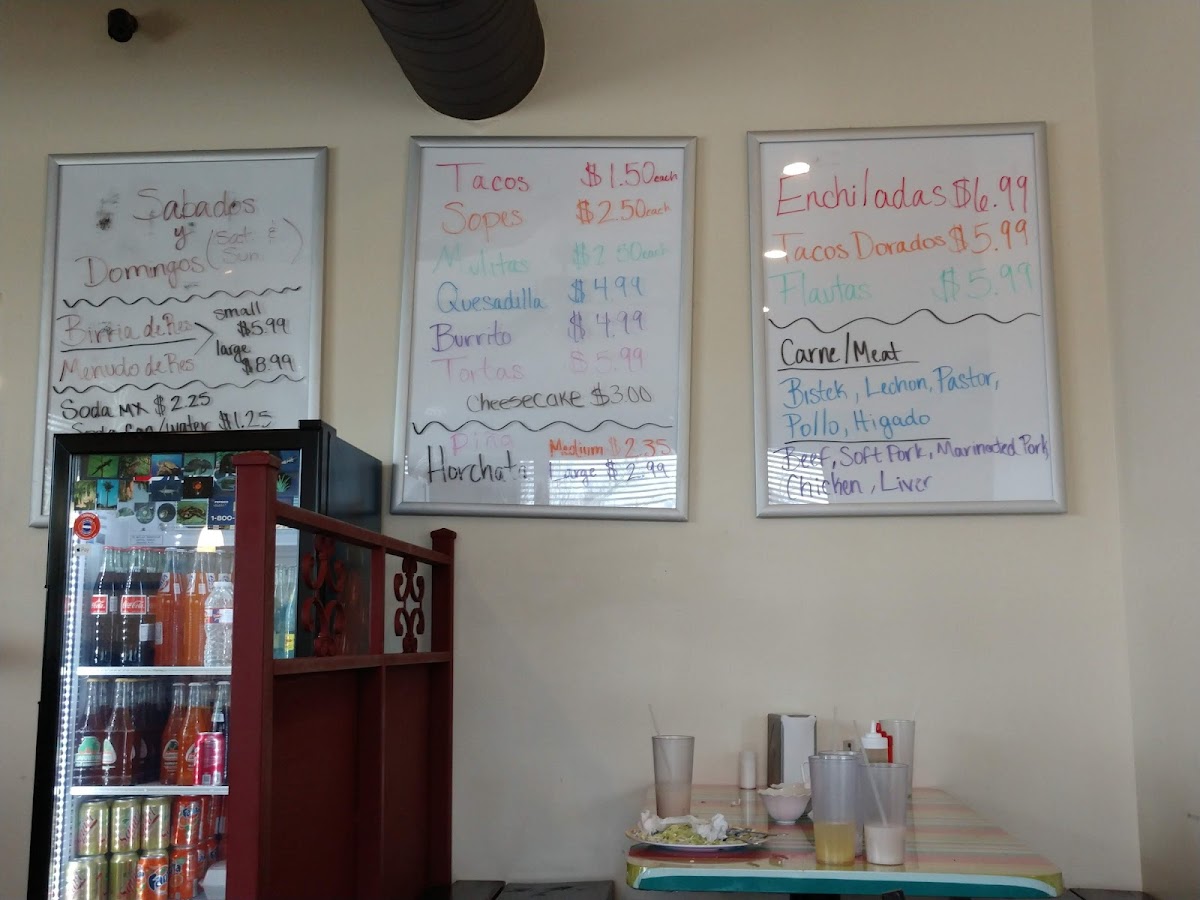 Sabados
y (Sat. &
Domingos Sun.)
Birria de Res small
$5.99
Menudo de Res large
$8.99
Soda MX $2.25
Soda can/water $1.25
Tacos $1.50 each
Sopes $2.50 each
Mulitas $2.50 each
Quesadulla $4.99
Burrito $4.99
Tortas $5.99
Cheesecake $3.00
Piña Medium $2.35
Horchata Large $2.99
Enchiladas $6.99
Tacos Dorados $5.99
Flautas $5.99
Carne/Meat
Bistek, Lechon, Pastor,
Pollo, Higado
Beef, Soft Pork, Marinated Pork
Chicken, Liver
1-800-
Coca-Cola
Coca-Cola
Fanta